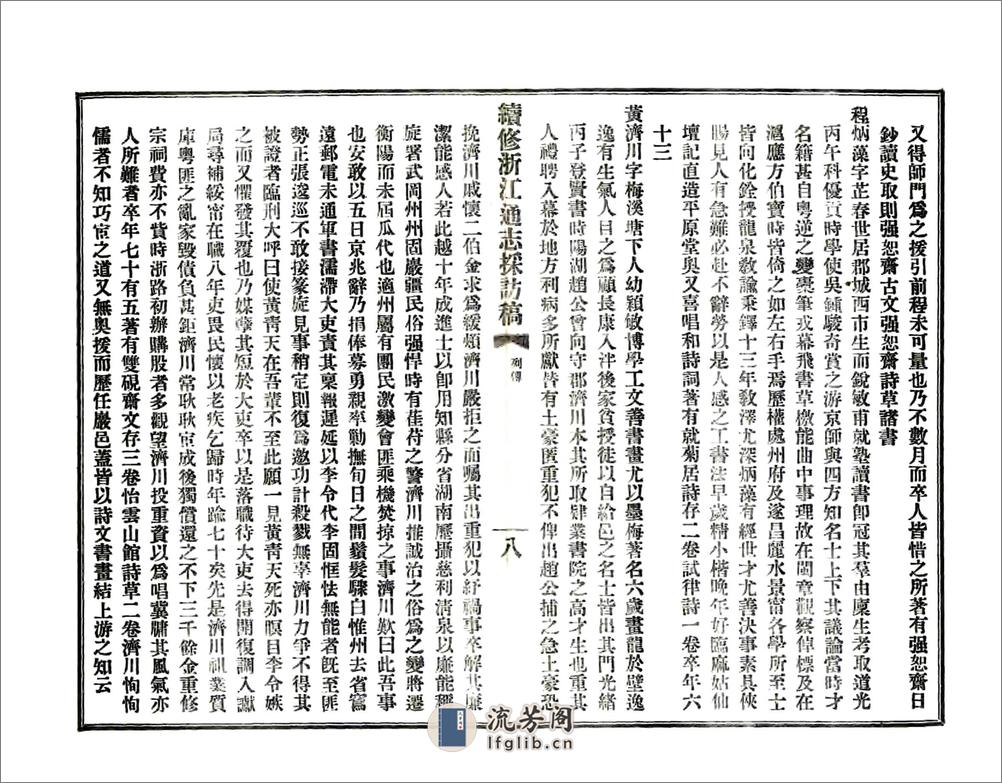 又得師門爲之援引前程未可量也乃不數月而卒人皆惜之所著有强恕齋日
鈔讀史取則强恕齋古文强恕齋詩草諸書
程炳藻字芷春世居郡城西市生而銳敏甫就塾讀書卽冠其羣由廩生考取道光
丙午科優貢時學使吳鍾駿奇賞之游京師與四方知名士上下其議論當時才
名籍甚自粵逆之變橐筆戎幕飛書草檄能曲中事理故在閩章觀察倬標及在
溫應方伯寶時皆倚之如左右手焉歷權處州府及遂昌麗水景甯各學所至士
皆向化銓授龍泉敎諭秉鐸十三年敎澤尤深炳藻有經世才尤善決事素具俠
腸見人有急難必赴不辭勞以是人感之工書法早歲精小楷晚年好臨麻姑仙
壇記直造平原堂奧又喜唱和詩詞著有就菊居詩存二卷試律詩一卷卒年六
十三
黃濟川字梅溪塘下人幼穎敏博學工文善書畫尤以墨梅著名六歲畫龍於壁逸
逸有生氣人目之爲顧長康入泮後家貧授徒以自給邑之名士皆出其門光緒
丙子登賢書時陽湖趙公會向守郡濟川本其所取肄業書院之高才生也重其
人禮聘入幕於地方利病多所獻皆有土豪匿重犯不俾出趙公捕之急土豪恐
續修浙江通志採訪稿
列傳
八
挽濟川戚懷二伯金求爲緩頰濟川嚴拒之而囑其出重犯以紓禍事卒解其廉
潔能感人若此越十年成進士以卽用知縣分省湖南歷攝慈利清泉以廉能稱
旋署武岡州州固巖疆民俗强悍時有萑苻之警濟川推誠治之俗爲之變將遷
衡陽而未屆瓜代也適州屬有團民激變會匪乘機焚掠之事濟川歎曰此吾事
也安敢以五日京兆辭乃捐俸募勇親率勦撫旬日之間鬚髮驟白惟州去省窵
遠郵電未通軍書濡滯大吏責其稟報遲延以李令代李固恇怯無能者旣至匪
勢正張逡巡不敢接篆旋見事稍定則復爲邀功計殺戮無辜濟川力爭不得其
被證者臨刑大呼曰使黃青天在吾輩不至此願一見黃青天死亦瞑目李令嫉
之而又懼發其覆也乃媒孽其短於大吏卒以是落職待大吏去得開復調入讞
局尋補綏甯在職八年吏畏民懷以老疾乞歸時年踰七十矣先是濟川祖業質
庫粵匪之亂家毀債負甚鉅濟川常耿耿宦成後獨償還之不下三千餘金重修
宗祠費亦不貲時浙路初辦購股者多觀望濟川投重資以爲唱蹇驌其風氣亦
人所難者卒年七十有五著有雙硯齋文存三卷怡雲山館詩草二卷濟川恂恂
儒者不知巧宦之道又無奧援而歷任嚴邑蓋皆以詩文書畫結上游之知云
流芳閣
lfglib.cn